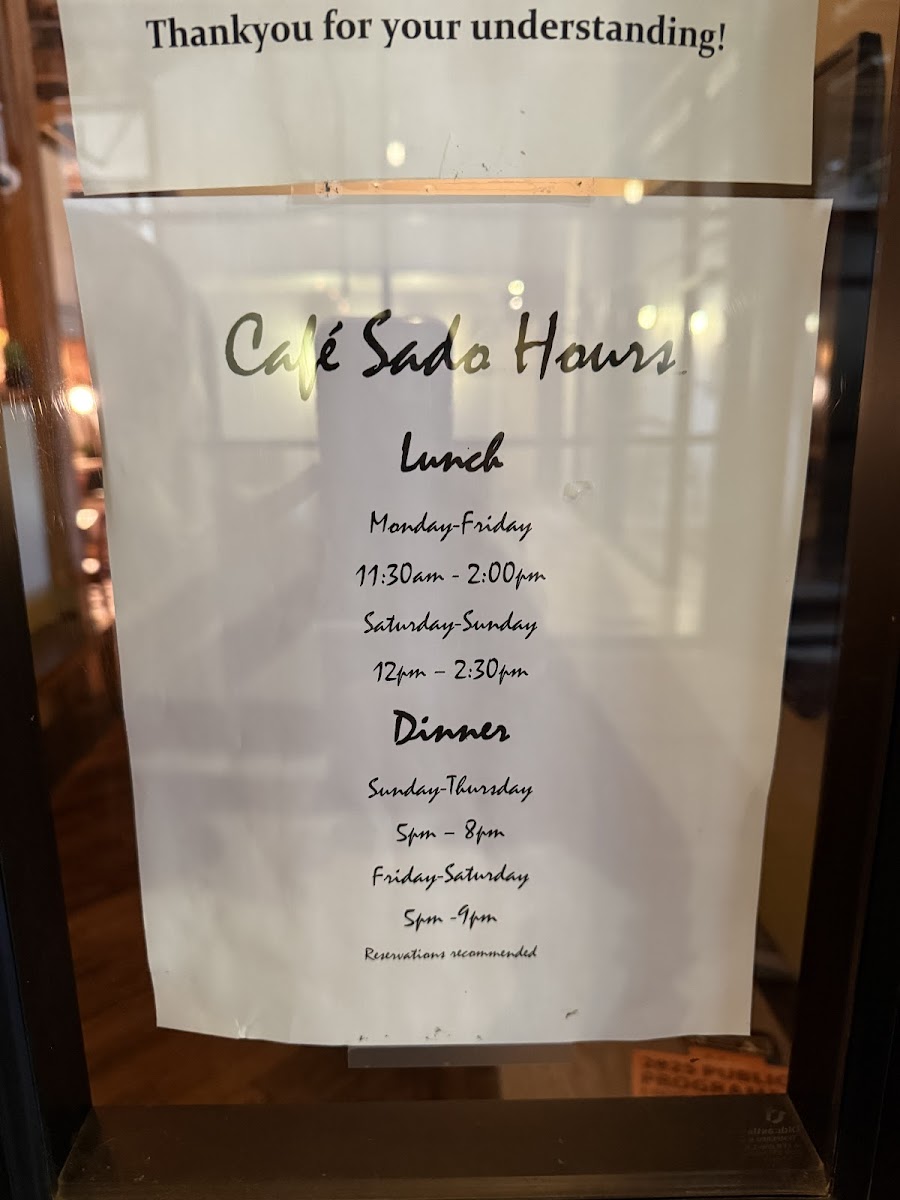 Thankyou for your understanding!
Café Sado Hours
Lunch
Monday-Friday
11:30am - 2:00pm
Saturday-Sunday
12pm – 2:30pm
Dinner
Sunday-Thursday
5pm – 8pm
Friday-Saturday
5pm -9pm
Reservations recommended
2025 PUBLIC
PROGRAM